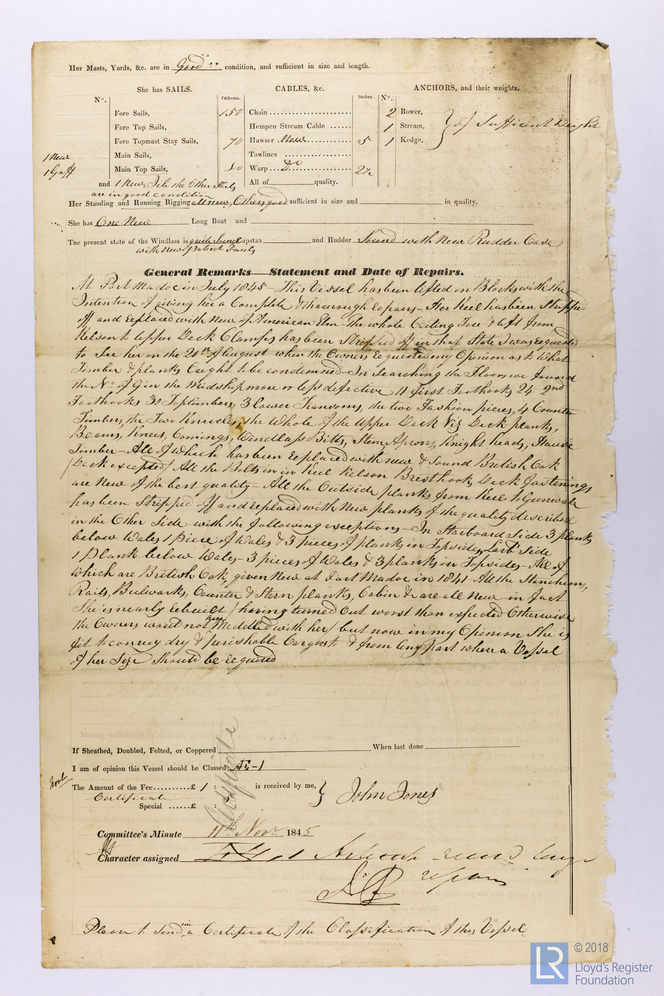 Her Masts, Yards, &c. are in Good condition, and sufficient in size and length.
She has SAILS. CABLES, &c. ANCHORS, and their weights.
N°. Fathoms. Inches. N°.
Fore Sails, 150 Chain 2 Bower,
Fore Top Sails, Hempen Stream Cable 1 Stream, of Sufficient Weight
Fore Topmast Stay Sails, 70 Hawser 5 1 Kedge,
1 New Main Sails, Towlines
1 Gaff Main Top Sails, 80 Warp Do 2½
and 1 New Jib the Other Sails All of quality.
are in good condition
Her Standing and Running Rigging all new, Others good sufficient in size and in quality.
She has One New Long Boat and
The present state of the Windlass is quite Sound Capstan and Rudder Sound with New Rudder Case
with new Patent Pauls
General Remarks—Statement and Date of Repairs.
At Port Madoc in July 1845 - This Vessel has been lifted on Blocks with the
Intention of giving her a Complete & thorough repairs - Her Keel has been Stripped
off and replaced with new of American Elm - The whole Ceiling Fore & Aft from
Kelson to upper Deck Clamps has been Stripped off in that State I was requested
to See her on the 21st of August when the Owners requested my Opinion as to What
Timber & planks Ought to be condemned - In Searching the Floors we found
the No. of 9 in the Midships more or less defective 11 first Foothooks 24 2nd
Foothooks 30 Toptimbers, 3 Lower Transoms, the two Fashion pieces, 4 Counter
Timbers, the Two Knuckles, the Whole of the Upper Deck Viz Deck planks,
Beams, Knees, Comings, Windlass Bitts, Stem, Apron, Knight heads, Hawse
Timber - All of Which has been replaced with new & Sound British Oak
(Deck excepted) All the Bolts in Keel Kelson Bresthooks Deck fastenings
are New of the best quality - All the Outside planks from Keel to Gunwale
has been Stripped off and replaced with New planks of the quality described
in the Other Side with the following exceptions - In Starboard Side 3 planks
below Wales 1 piece of Wales & 3 pieces of planks in Topsides Larb. Side
1 plank below Wales - 3 pieces of Wales & 3 planks in Topsides - All of
which are British Oak, given New at Port Madoc in 1841 - All the Stanchions,
Rails, Bulwarks, Counter & Stern planks, Cabin & are all New in fact
She is nearly rebuilt (having turned Out worst than expected Otherwise
the Owners would not have Meddled with her) but now in my Opinion She is
fit to convey dry & perishable Cargoes to & from any part where a Vessel
of her Size Should be required
If Sheathed, Doubled, Felted, or Coppered When last done
I am of opinion this Vessel should be Classed Æ-1
The Amount of the Fee £ 1 : : is received by me, John Jones
Certificate
Special £ :
Committee's Minute 11th Novr. 1845
Character assigned
Please to Send me a Certificate of the Classification of this Vessel
LR © 2018
Lloyd's Register
Foundation